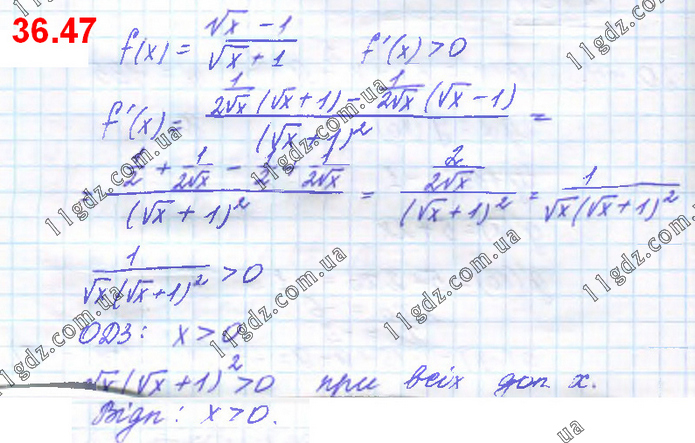 36.47
f(x) = (√x - 1)/(√x + 1) f'(x) > 0
f'(x) = (1/(2√x) (√x + 1) - 1/(2√x) (√x - 1))/(√x + 1)² =
= (1/2 + 1/(2√x) - 1/2 + 1/(2√x))/(√x + 1)² = (2/(2√x))/(√x + 1)² = 1/(√x(√x + 1)²)
1/(√x(√x + 1)²) > 0
ОДЗ: x > 0
√x(√x + 1)² > 0 при всіх доп x.
Відп: x > 0.
11gdz.com.ua
11gdz.com.ua
11gdz.com.ua
11gdz.com.ua
11gdz.com.ua
11gdz.com.ua
11gdz.com.ua
11gdz.com.ua
ua